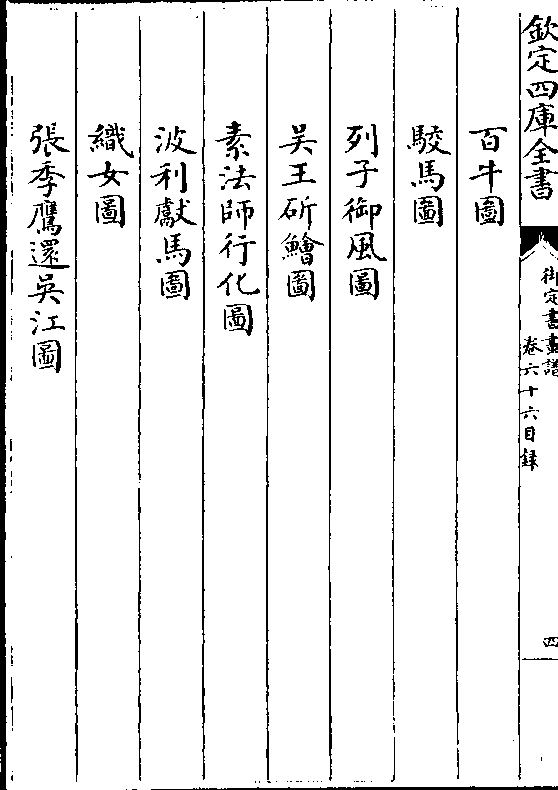 欽定四庫全書
御定書畫譜
卷六十六目録
四
百牛圖
駮馬圖
列子御風圖
吳王斫鱠圖
素法師行化圖
波利獻馬圖
織女圖
張季鷹還吳江圖